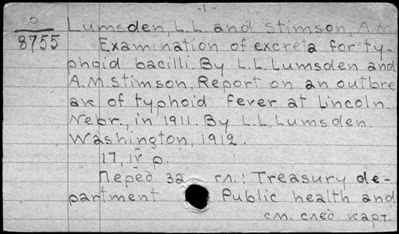 1
0 Lumsden, L.L. and Stimson, A.M
8755 Examination of excreta for ty-
phoid bacilli. By L.L. Lumsden and
A.M. Stimson. Report on an outbre
ak of typhoid fever at Lincoln.
Nebr., in 1911. By L.L. Lumsden
Washington, 1912.
17, IV p.
Перед загл.: Treasury de-
partment Public health and
см. след. карт.